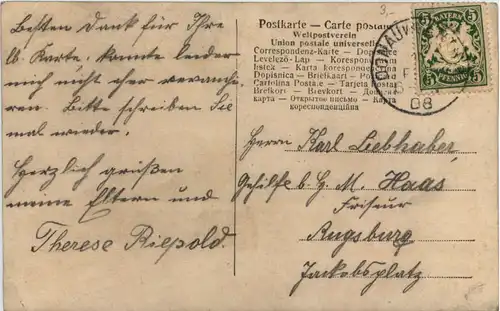 Besten Dank für Ihre
lb. Karte, konnte leider
mich nicht eher revanchi-
ren. Bitte schreiben Sie
mal wieder.
Herzlich grüßen
meine Eltern und
Therese Riepold.
3.-
Postkarte — Carte postale
Weltpostverein
Union postale universelle
Correspondenz-Karte — Dopisnice
Levelező-Lap — Korespondenční
lístek — Karta korespondencyjna
Dopisnica — Briefkaart —
Cartolina Postale — Tarjeta Postal
Brefkort — Brevkort —
карта — Открытое письмо — Карта
кореспонденційна
BAYERN
5 5
5 5
PFENNIG
DONAUW
08
Herrn Karl Liebhaber,
Gehilfe b. H. M. Haas
Friseur
Augsburg
Jackobsplatz